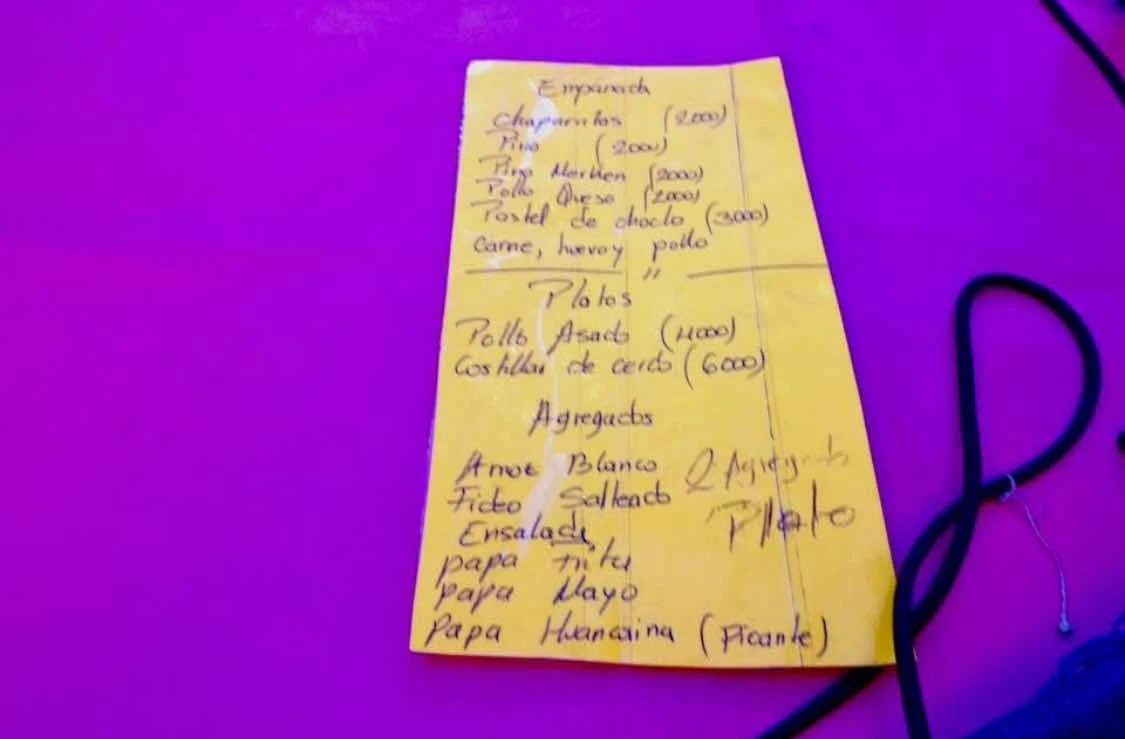 Empanada
Chaparritas (2000)
Pino (2000)
Pino Merken (2000)
Pollo Queso (2000)
Pastel de choclo (3000)
Carne, huevo y pollo
"
Platos
Pollo Asado (4000)
Costillar de cerdo (6000)
Agregados
Arroz Blanco
Fideo Salteado
Ensalada
papa frita
papa Mayo
Papa Huancaina (Picante)
2 Agregados
Plato